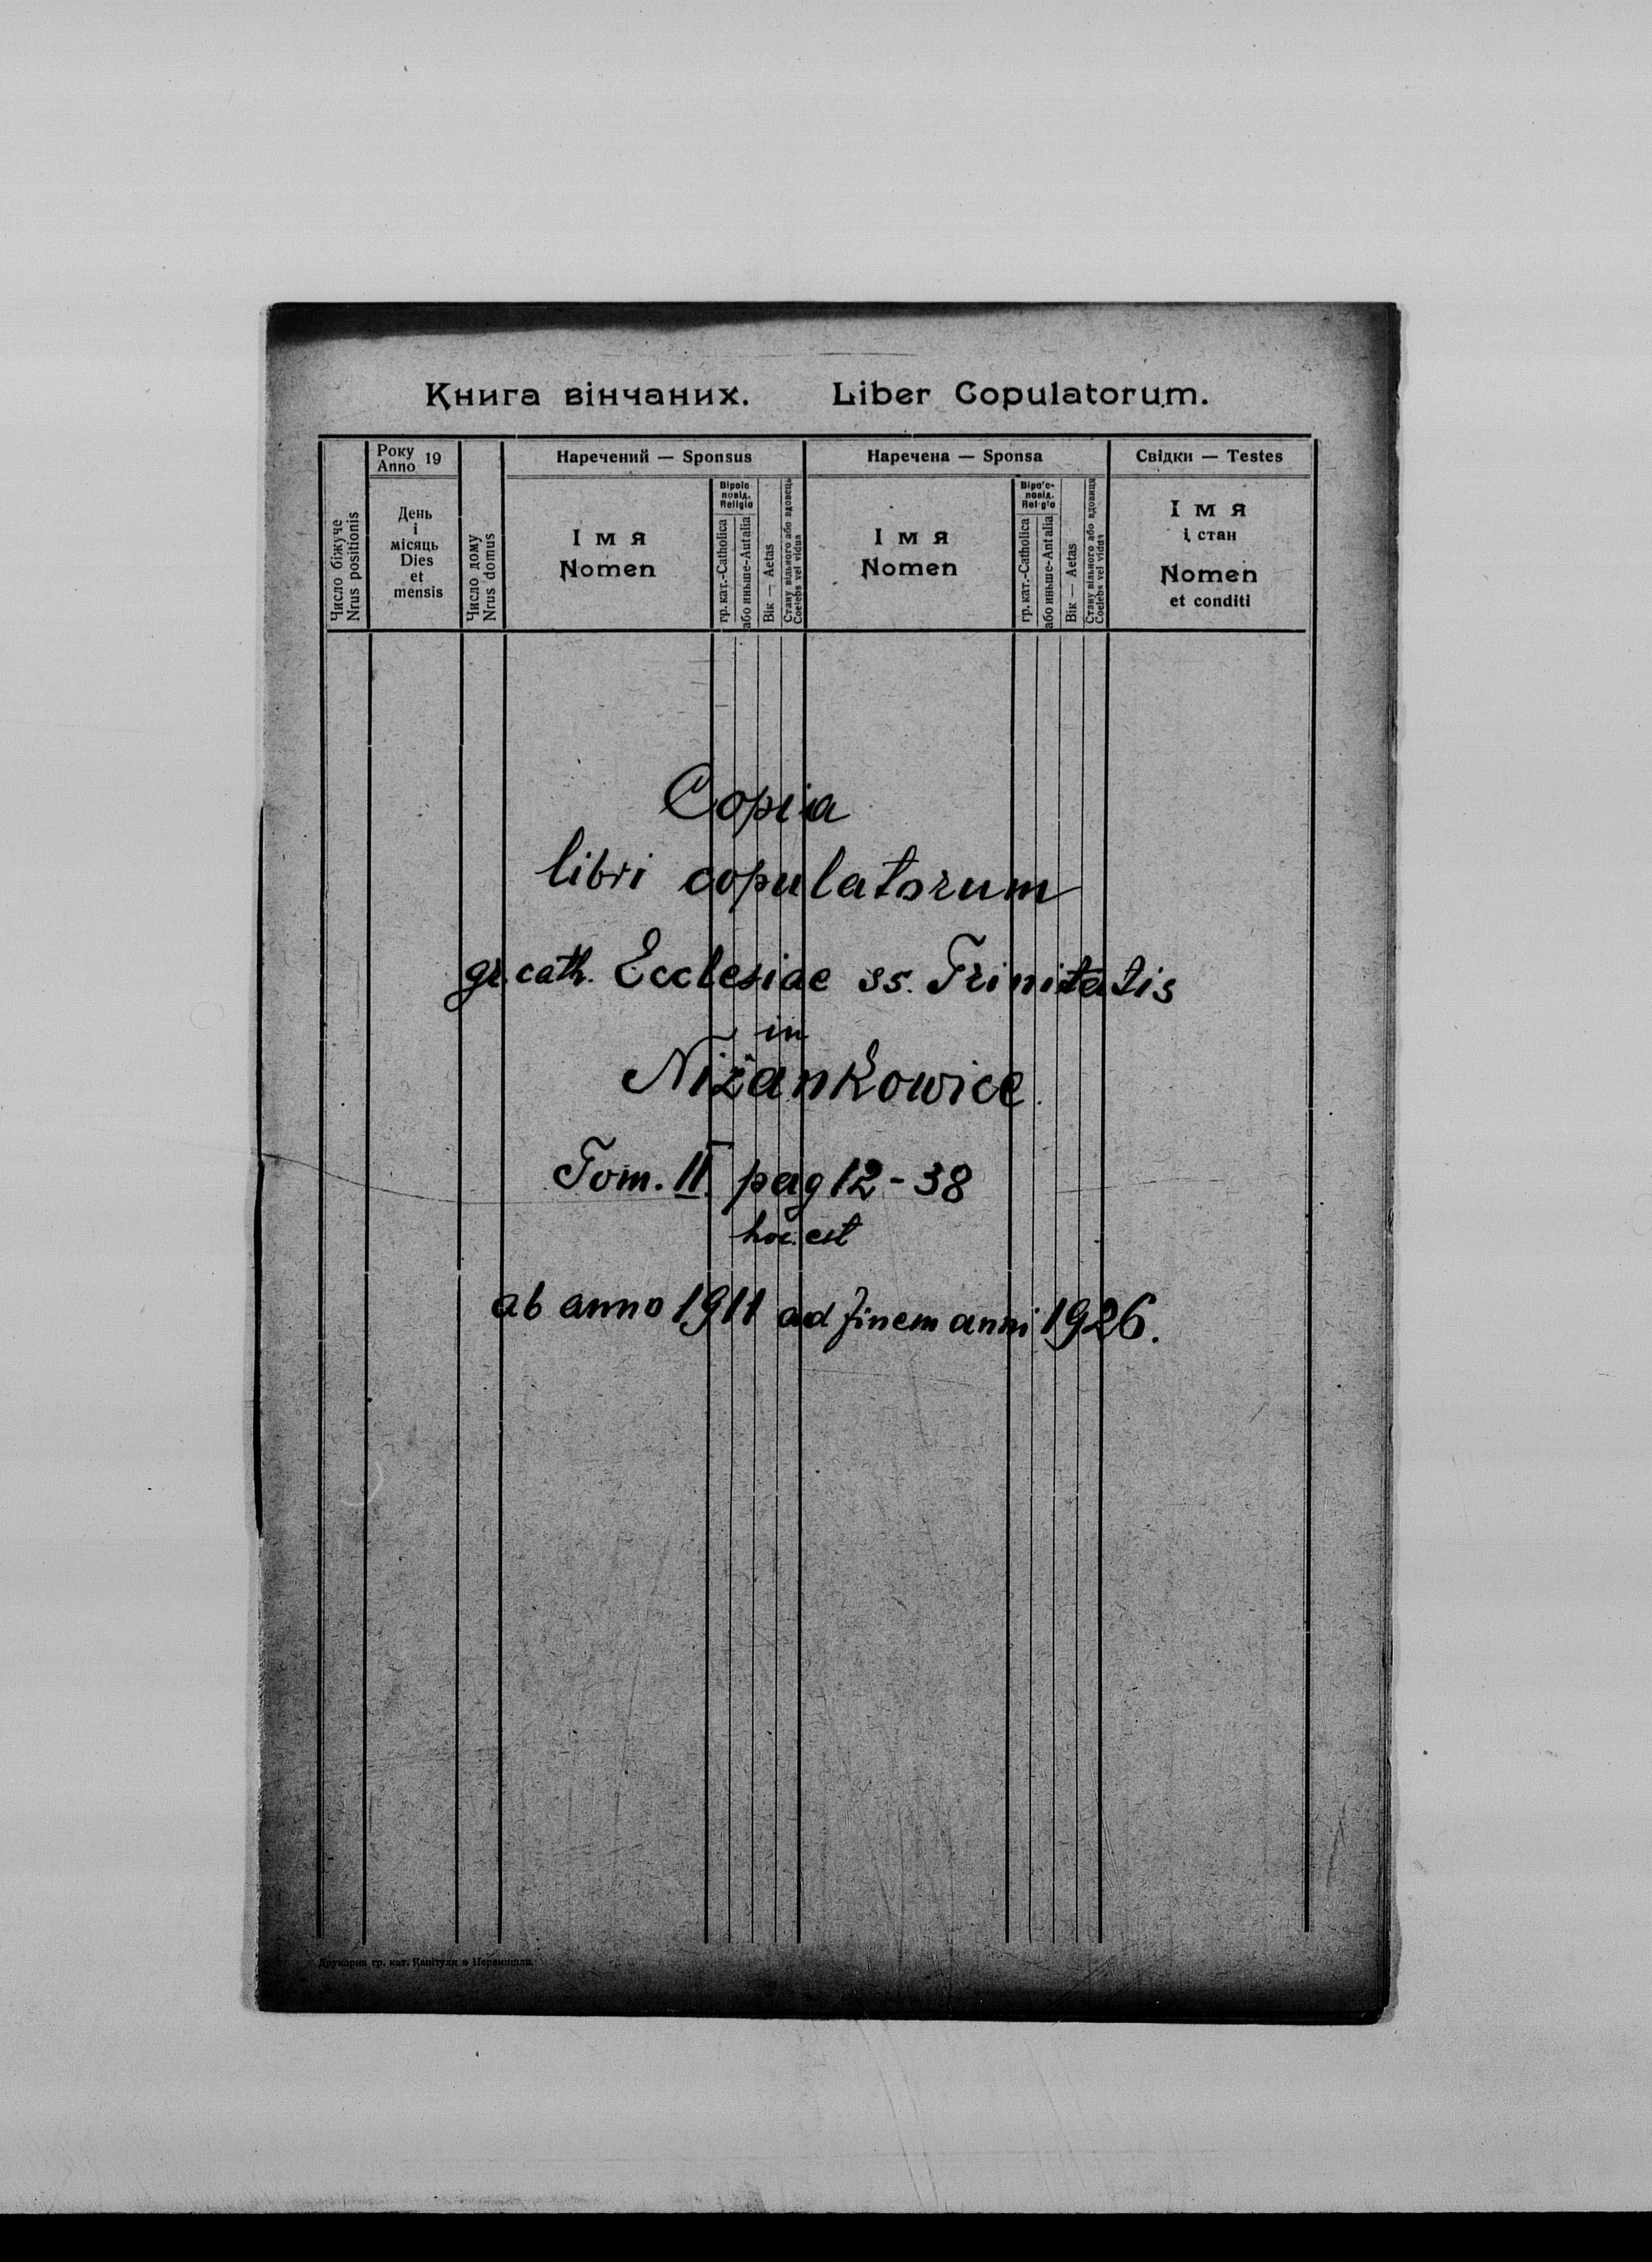 Книга вінчаних. Liber Copulatorum.
Число біжуче
Nrus positionis
Року
Anno 19
День
і
місяць
Dies
et
mensis
Число дому
Nrus domus
Наречений — Sponsus
Імя
Nomen
Віроіс
повід.
Religio
гр. кат.-Catholica
або иньше-Aut alia
Вік — Aetas
Стану вільного або вдовець
Coelebs vel vidus
Наречена — Sponsa
Імя
Nomen
Віро'с-
повід.
Religio
гр. кат.-Catholica
або иньше-Aut alia
Вік — Aetas
Стану вільного або вдовиця
Coelebs vel vidus
Свідки — Testes
Імя
і стан
Nomen
et conditi
Copia
libri copulatorum
gr. cath. Ecclesiae ss. Trinitatis
in
Niżankowice.
Tom. II. pag 12-38
hoc. est
ab anno 1911 ad finem anni 1926.
Друкарня гр. кат. Капітули в Перемишли.